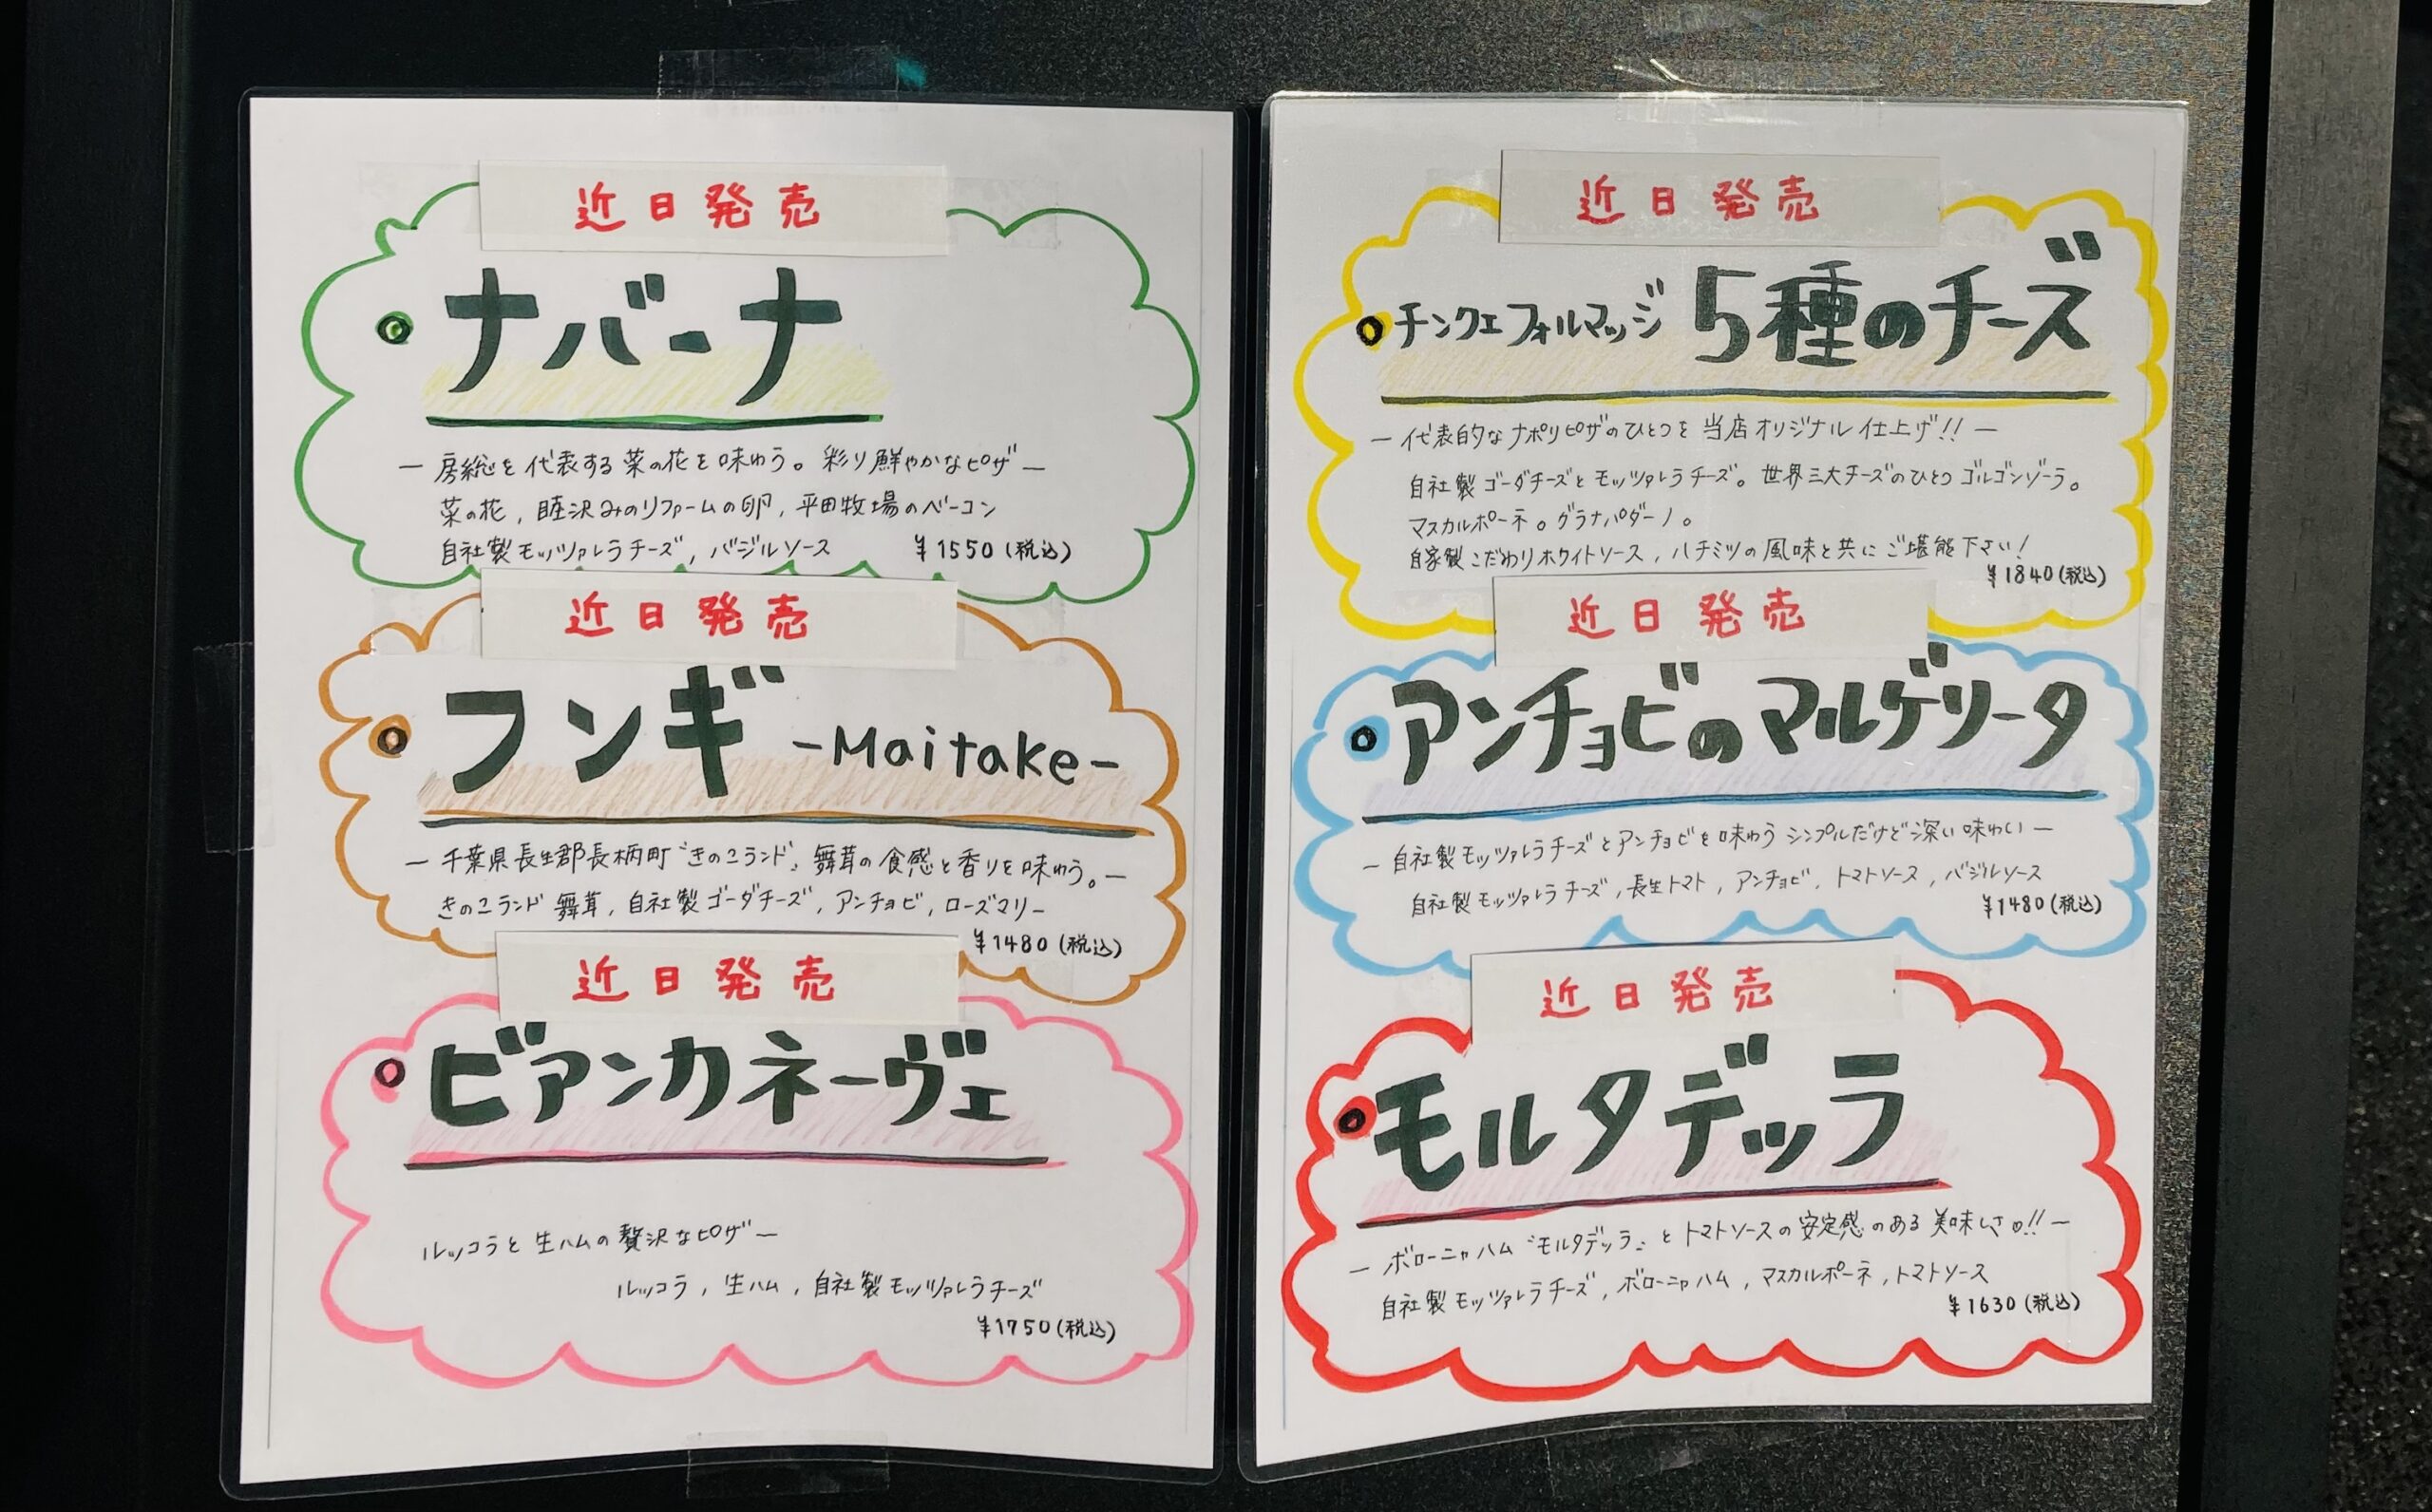 近日発売
ナバーナ
― 房総を代表する菜の花を味わう。彩り鮮やかなピザ ―
菜の花, 睦沢みのりファームの卵, 平田牧場のベーコン
自社製モッツァレラチーズ, バジルソース ¥1550(税込)
近日発売
フンギ -Maitake-
― 千葉県長生郡長柄町"きのこランド"舞茸の食感と香りを味わう。―
きのこランド舞茸, 自社製ゴーダチーズ, アンチョビ, ローズマリー
¥1480(税込)
近日発売
ビアンカネーヴェ
ルッコラと生ハムの贅沢なピザ ―
ルッコラ, 生ハム, 自社製モッツァレラチーズ
¥1750(税込)
近日発売
チンクエフォルマッジ 5種のチーズ
― 代表的なナポリピザのひとつを当店オリジナル仕上げ!! ―
自社製ゴーダチーズとモッツァレラチーズ。世界三大チーズのひとつゴルゴンゾーラ。
マスカルポーネ。グラナパダーノ。
自家製こだわりホワイトソース, ハチミツの風味と共にご堪能下さい!
¥1840(税込)
近日発売
アンチョビのマルゲリータ
― 自社製モッツァレラチーズとアンチョビを味わう シンプルだけど深い味わい ―
自社製モッツァレラチーズ, 長生トマト, アンチョビ, トマトソース, バジルソース
¥1480(税込)
近日発売
モルタデッラ
― ボローニャハム"モルタデッラ"とトマトソースの安定感のある美味しさ!! ―
自社製モッツァレラチーズ, ボローニャハム, マスカルポーネ, トマトソース
¥1630(税込)